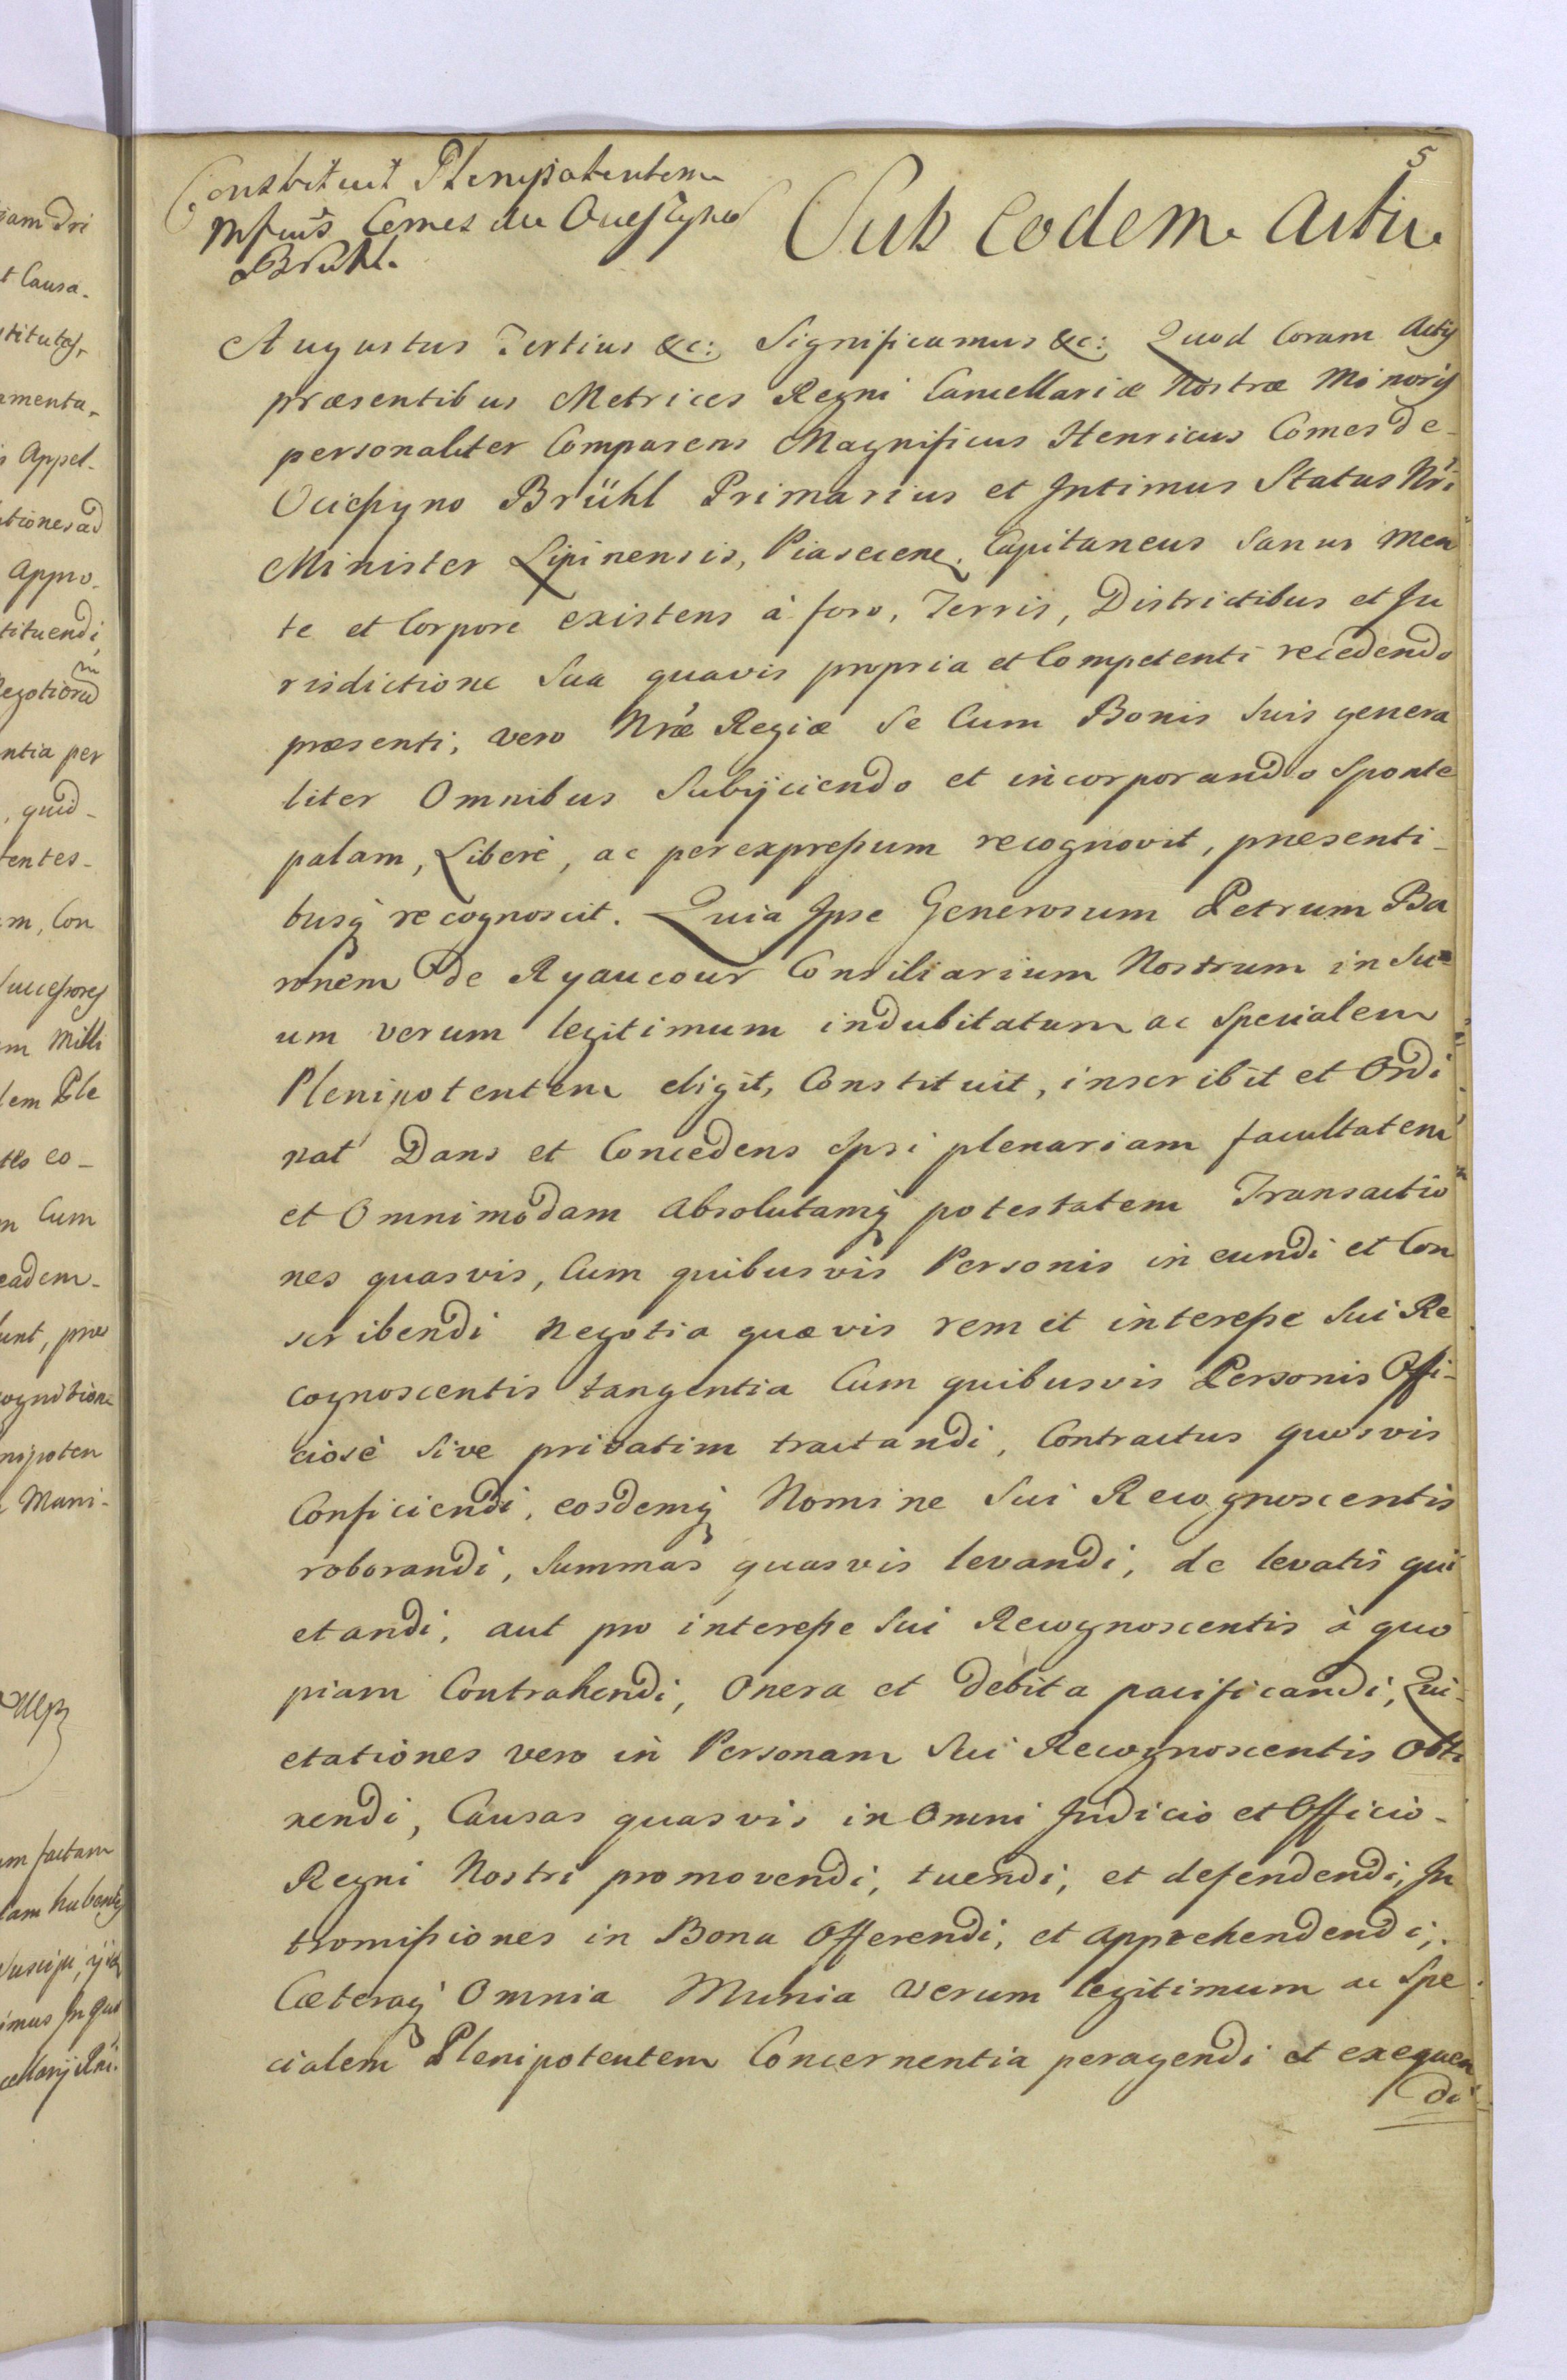 5
Constituit Plenipotentem
Mfcus Comes de Ocieszyno
Brühl.
Sub eodem Actu
Augustus Tertius &c: Significamus &c: Quod Coram Actis
præsentibus Metrices Regni Cancellariæ Nostræ Minoris
personaliter Comparens Magnificus Henricus Comes de-
Ocieszyno Brühl Primarius et Intimus Status Nri
Minister Lipinensis, Piasecen. Capitaneus Sanus Men
te et Corpore existens à foro, Terris, Districtibus et Ju
risdictione Sua quavis propria et Competenti recedendo
præsenti, vero Nræ Regiæ Se Cum Bonis Suis genera
liter Omnibus Subijciendo et incorporando Sponte
palam, Liberè, ac per expressum recognovit, præsenti-
busq recognoscit. Quia Ipse Generosum Petrum Ba
ronem de Ryaucour Consiliarium Nostrum in Su-
um verum legitimum indubitatum ac Specialem
Plenipotentem eligit, Constituit, inscribit et Ordi
nat Dans et Concedens Ipsi plenariam facultatem
et Omnimodam absolutamq potestatem Transactio
nes quasvis, Cum quibusvis Personis in eundi et Con
scribendi negotia quævis rem et interesse Sui Re
cognoscentis tangentia Cum quibusvis Personis Offi-
ciosè Sive privatim tractandi, Contractus quosvis
Conficiendi, eosdemq Nomine Sui Recognoscentis
roborandi, Summas quasvis levandi, de levatis qui
etandi, aut pro interesse Sui Recognoscentis à quo
piam Contrahendi, Onera et debita pacificandi, Qui-
etationes vero in Personam Sui Recognoscentis Obti
nendi, Causas quasvis in Omni Judicio et Officio-
Regni Nostri promovendi, tuendi, et defendendi, In
tromissiones in Bona Offerendi, et apprehendendi,
Cæteraq Omnia Munia verum legitimum ac Spe
cialem Plenipotentem Concernentia peragendi et exequen
di